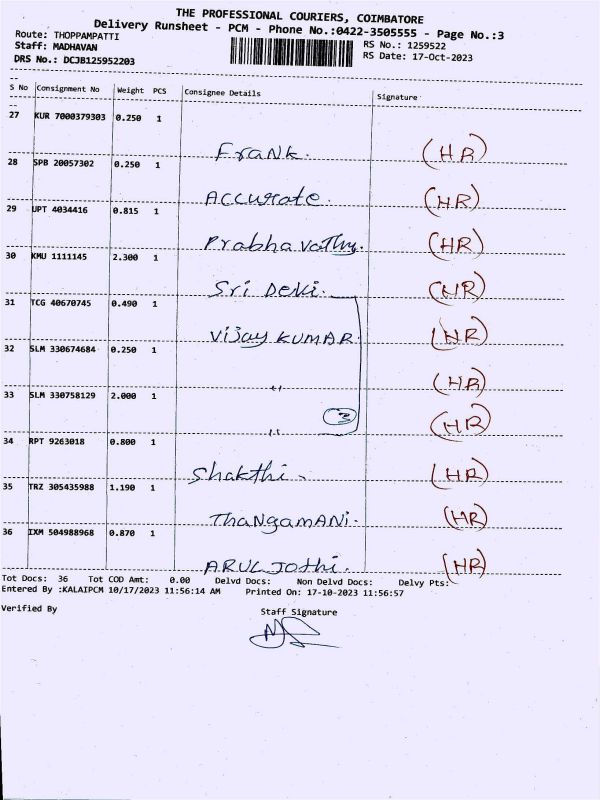 THE PROFESSIONAL COURIERS, COIMBATORE
Delivery Runsheet - PCM - Phone No.:0422-3505555 - Page No.:3
Route: THOPPAMPATTI
RS No.: 1259522
Staff: MADHAVAN
RS Date: 17-Oct-2023
DRS No.: DCJB125952203
S No Consignment No Weight PCS Consignee Details Signature
27 KUR 7000379303 0.250 1
Frank. (HR)
28 SPB 20057302 0.250 1
Accurate. (HR)
29 UPT 4034416 0.815 1
Prabhavathy. (HR)
30 KMU 1111145 2.300 1
Sri Devi. (HR)
31 TCG 40670745 0.490 1
Vijay KUMAR (HR)
32 SLM 330674684 0.250 1
" (HR)
33 SLM 330758129 2.000 1
3
" (HR)
34 RPT 9263018 0.800 1
Shakthi. (HR)
35 TRZ 305435988 1.190 1
ThangaMANi. (HR)
36 IXM 504988968 0.870 1
ARUL Jothi. (HR)
Tot Docs: 36 Tot COD Amt: 0.00 Delvd Docs: Non Delvd Docs: Delvy Pts:
Entered By :KALAIPCM 10/17/2023 11:56:14 AM Printed On: 17-10-2023 11:56:57
Verified By Staff Signature